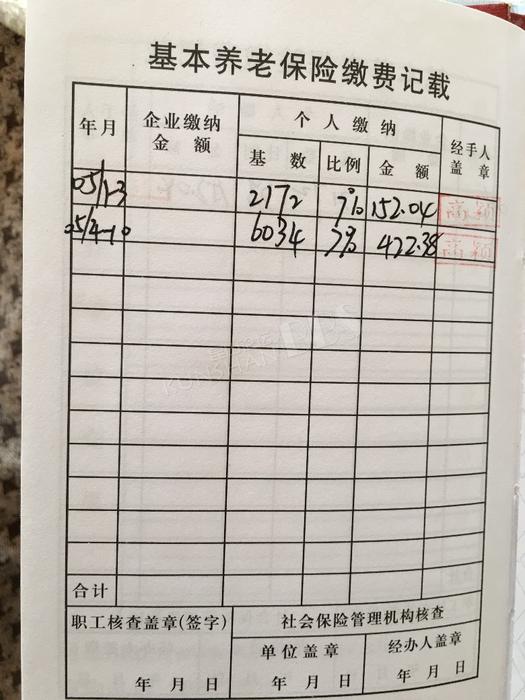 基本养老保险缴费记载
年月 企业缴纳金额 个人缴纳 经手人盖章
基数 比例 金额
05/1-3 2172 7% 152.04
05/4-10 6034 7% 422.38
合计
职工核查盖章(签字) 社会保险管理机构核查
单位盖章 经办人盖章
年 月 日 年 月 日 年 月 日